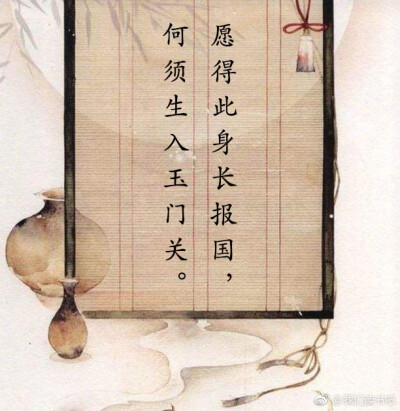 愿得此身长报国，
何须生入玉门关。